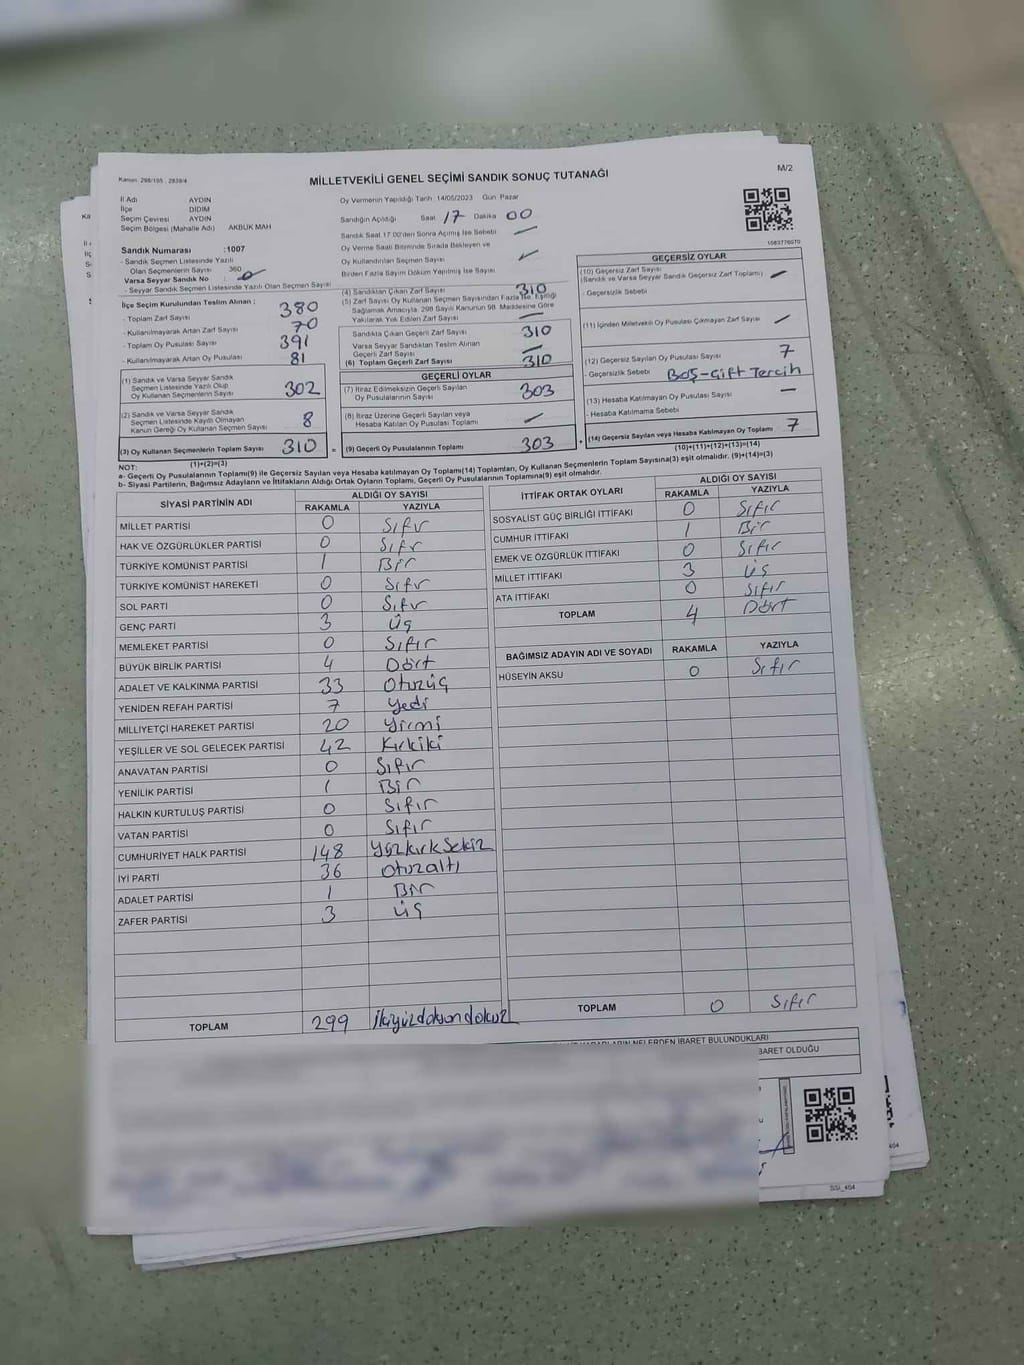 Kanun: 298/105 , 2839/4
MİLLETVEKİLİ GENEL SEÇİMİ SANDIK SONUÇ TUTANAĞI
M/2
İl Adı AYDIN
İlçe DİDİM
Seçim Çevresi AYDIN
Seçim Bölgesi (Mahalle Adı) AKBÜK MAH
Oy Vermenin Yapıldığı Tarih :14/05/2023 Gün: Pazar
Sandığın Açıldığı Saat 17 Dakika 00
Sandık Saat 17.00'den Sonra Açılmış İse Sebebi
Oy Verme Saati Bitiminde Sırada Bekleyen ve
Oy Kullandırılan Seçmen Sayısı
Birden Fazla Sayım Döküm Yapılmış İse Sayısı
Sandık Numarası :1007
- Sandık Seçmen Listesinde Yazılı
Olan Seçmenlerin Sayısı 360
Varsa Seyyar Sandık No :
- Seyyar Sandık Seçmen Listesinde Yazılı Olan Seçmen Sayısı
İlçe Seçim Kurulundan Teslim Alınan :
- Toplam Zarf Sayısı 380
- Kullanılmayarak Artan Zarf Sayısı 70
- Toplam Oy Pusulası Sayısı 391
- Kullanılmayarak Artan Oy Pusulası 81
(1) Sandık ve Varsa Seyyar Sandık
Seçmen Listesinde Yazılı Olup
Oy Kullanan Seçmenlerin Sayısı 302
(2) Sandık ve Varsa Seyyar Sandık
Seçmen Listesinde Kayıtlı Olmayan
Kanun Gereği Oy Kullanan Seçmen Sayısı 8
(3) Oy Kullanan Seçmenlerin Toplam Sayısı 310
(1)+(2)=(3)
(4) Sandıktan Çıkan Zarf Sayısı 310
(5) Zarf Sayısı Oy Kullanan Seçmen Sayısından Fazla İse, Eşitliği
Sağlamak Amacıyla, 298 Sayılı Kanunun 98. Maddesine Göre
Yakılarak Yok Edilen Zarf Sayısı
Sandıkta Çıkan Geçerli Zarf Sayısı 310
Varsa Seyyar Sandıktan Teslim Alınan
Geçerli Zarf Sayısı
(6) Toplam Geçerli Zarf Sayısı 310
GEÇERLİ OYLAR
(7) İtiraz Edilmeksizin Geçerli Sayılan
Oy Pusulalarının Sayısı 303
(8) İtiraz Üzerine Geçerli Sayılan veya
Hesaba Katılan Oy Pusulası Toplamı
= (9) Geçerli Oy Pusulalarının Toplamı 303
1083776070
GEÇERSİZ OYLAR
(10) Geçersiz Zarf Sayısı
(Sandık ve Varsa Seyyar Sandık Geçersiz Zarf Toplamı)
- Geçersizlik Sebebi
(11) İçinden Milletvekili Oy Pusulası Çıkmayan Zarf Sayısı
(12) Geçersiz Sayılan Oy Pusulası Sayısı 7
- Geçersizlik Sebebi Boş-Çift Tercih
(13) Hesaba Katılmayan Oy Pusulası Sayısı
- Hesaba Katılmama Sebebi
+ (14) Geçersiz Sayılan veya Hesaba Katılmayan Oy Toplamı 7
(10)+(11)+(12)+(13)=(14)
NOT:
a- Geçerli Oy Pusulalarının Toplamı(9) ile Geçersiz Sayılan veya Hesaba katılmayan Oy Toplamı(14) Toplamları, Oy Kullanan Seçmenlerin Toplam Sayısına(3) eşit olmalıdır. (9)+(14)=(3)
b- Siyasi Partilerin, Bağımsız Adayların ve İttifakların Aldığı Ortak Oyların Toplamı, Geçerli Oy Pusulalarının Toplamına(9) eşit olmalıdır.
SİYASİ PARTİNİN ADI ALDIĞI OY SAYISI
RAKAMLA YAZIYLA
MİLLET PARTİSİ 0 Sıfır
HAK VE ÖZGÜRLÜKLER PARTİSİ 0 Sıfır
TÜRKİYE KOMÜNİST PARTİSİ 1 Bir
TÜRKİYE KOMÜNİST HAREKETİ 0 Sıfır
SOL PARTİ 0 Sıfır
GENÇ PARTİ 3 Üç
MEMLEKET PARTİSİ 0 Sıfır
BÜYÜK BİRLİK PARTİSİ 4 Dört
ADALET VE KALKINMA PARTİSİ 33 Otuzüç
YENİDEN REFAH PARTİSİ 7 Yedi
MİLLİYETÇİ HAREKET PARTİSİ 20 Yirmi
YEŞİLLER VE SOL GELECEK PARTİSİ 42 Kırkiki
ANAVATAN PARTİSİ 0 Sıfır
YENİLİK PARTİSİ 1 Bir
HALKIN KURTULUŞ PARTİSİ 0 Sıfır
VATAN PARTİSİ 0 Sıfır
CUMHURİYET HALK PARTİSİ 148 Yüzkırksekiz
İYİ PARTİ 36 Otuzaltı
ADALET PARTİSİ 1 Bir
ZAFER PARTİSİ 3 Üç
TOPLAM 299 İkiyüzdoksandokuz
İTTİFAK ORTAK OYLARI ALDIĞI OY SAYISI
RAKAMLA YAZIYLA
SOSYALİST GÜÇ BİRLİĞİ İTTİFAKI 0 Sıfır
CUMHUR İTTİFAKI 1 Bir
EMEK VE ÖZGÜRLÜK İTTİFAKI 0 Sıfır
MİLLET İTTİFAKI 3 Üç
ATA İTTİFAKI 0 Sıfır
TOPLAM 4 Dört
BAĞIMSIZ ADAYIN ADI VE SOYADI RAKAMLA YAZIYLA
HÜSEYİN AKSU 0 Sıfır
TOPLAM 0 Sıfır
NELERDEN İBARET BULUNDUKLARI
BARET OLDUĞU